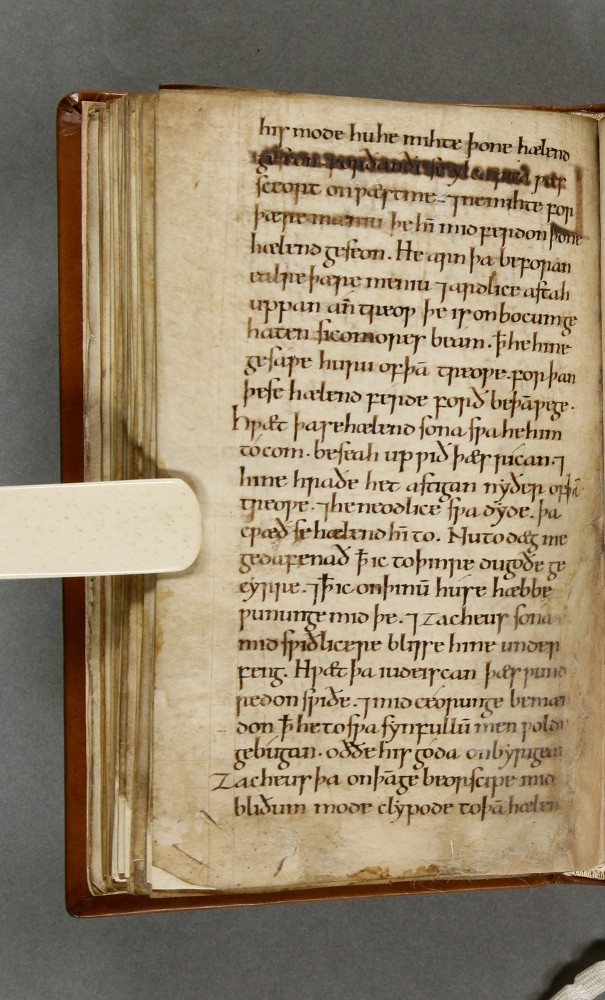 his mode hu he mihte þone hælend
ƿæs
sceort on ƿæstme. ⁊ ne mihte for
þære meniu þe hī mid ferdon þone
hælend geseon. He arn þa beforan
ealre þære meniu ⁊ ardlice astah
uppan án treoƿ þe is on bocunge
haten sicomores beam. ꝥ he hine
gesaƿe huru of þā treoƿe. for þan
þe se hælend ferde forð be þā ƿege.
Hƿæt þa se hælend sona sƿa he him
to com. beseah up ƿið þæs rican. ⁊
hine hraðe het astigan nyðer of þā
treoƿe. ⁊ he neodlice sƿa dyde. þa
cƿæð se hælend hī to. Nu todæg me
gedafenað ꝥ ic to þinre duguðe ge
cyrre. ⁊ ꝥ ic on þinū huse hæbbe
ƿununge mid þe. ⁊ Zacheus sona
mid sƿiðlicere blisse hine under
feng. Hƿæt þa iudeiscan þæs ƿund
redon sƿiðe. ⁊ mid ceorunge bemæn
don ꝥ he to sƿa synfullū men ƿolde
gebugan. oððe his goda onbyrigean
Zacheus þa on þāge beorscipe mid
bliðum mode clypode to þā hælen